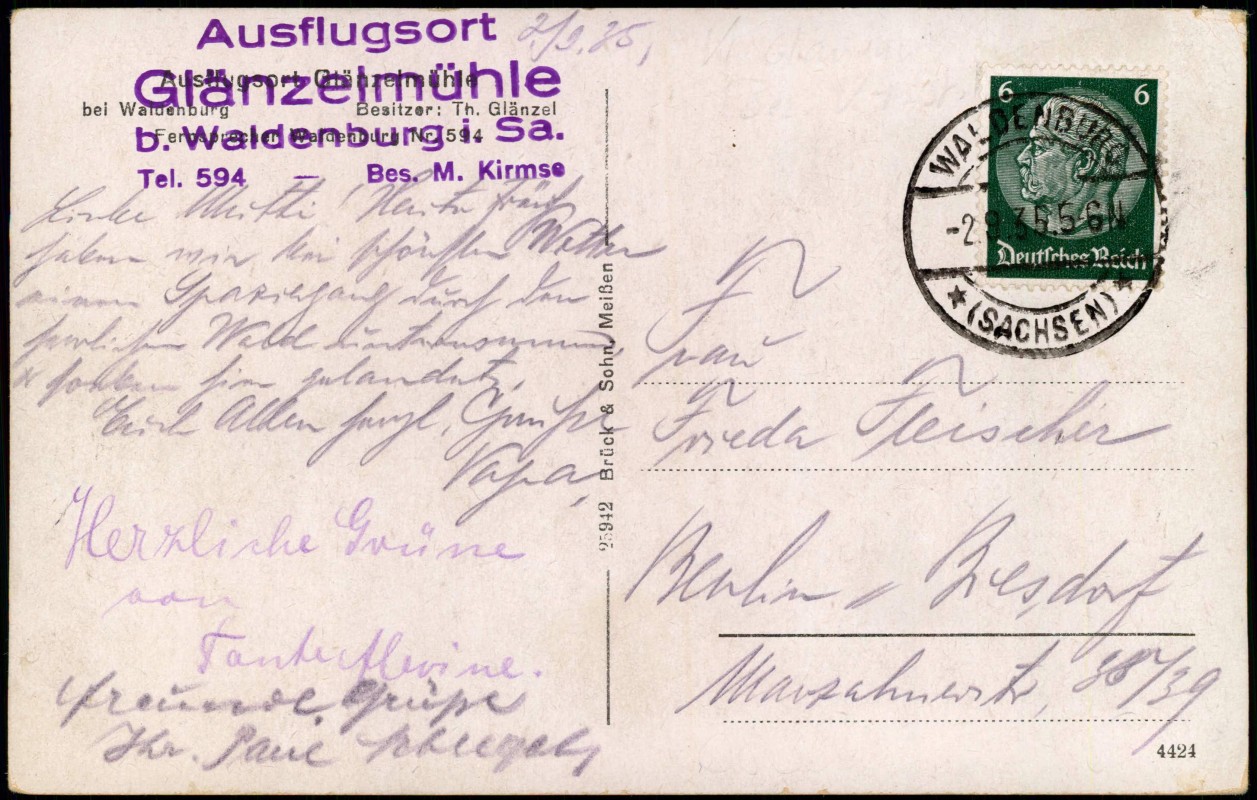 Ausflugsort
Glänzelmühle
b. Waldenburg i. Sa.
Tel. 594 — Bes. M. Kirmse
Ausflugsort Glänzelmühle
bei Waldenburg Besitzer: Th. Glänzel
Fernsprecher Waldenburg Nr. 594
2/9.35,
Liebe Mutti! Heute früh
haben wir bei schönsten Wetter
einen Spaziergang durch den
herrlichen Wald unternommen
hier gelandet.
Euch Allen herzl. Grüße
Papa
Herzliche Grüße
von
Tante
freundl. Grüße
Ihr. Paul
25942 Brück & Sohn, Meißen
6 6
Deutsches Reich
WALDENBURG
-2.9.35.5-6N
★ (SACHSEN) ★
Frau
Frieda Fleischer
Berlin // Biesdorf
38/39
4424